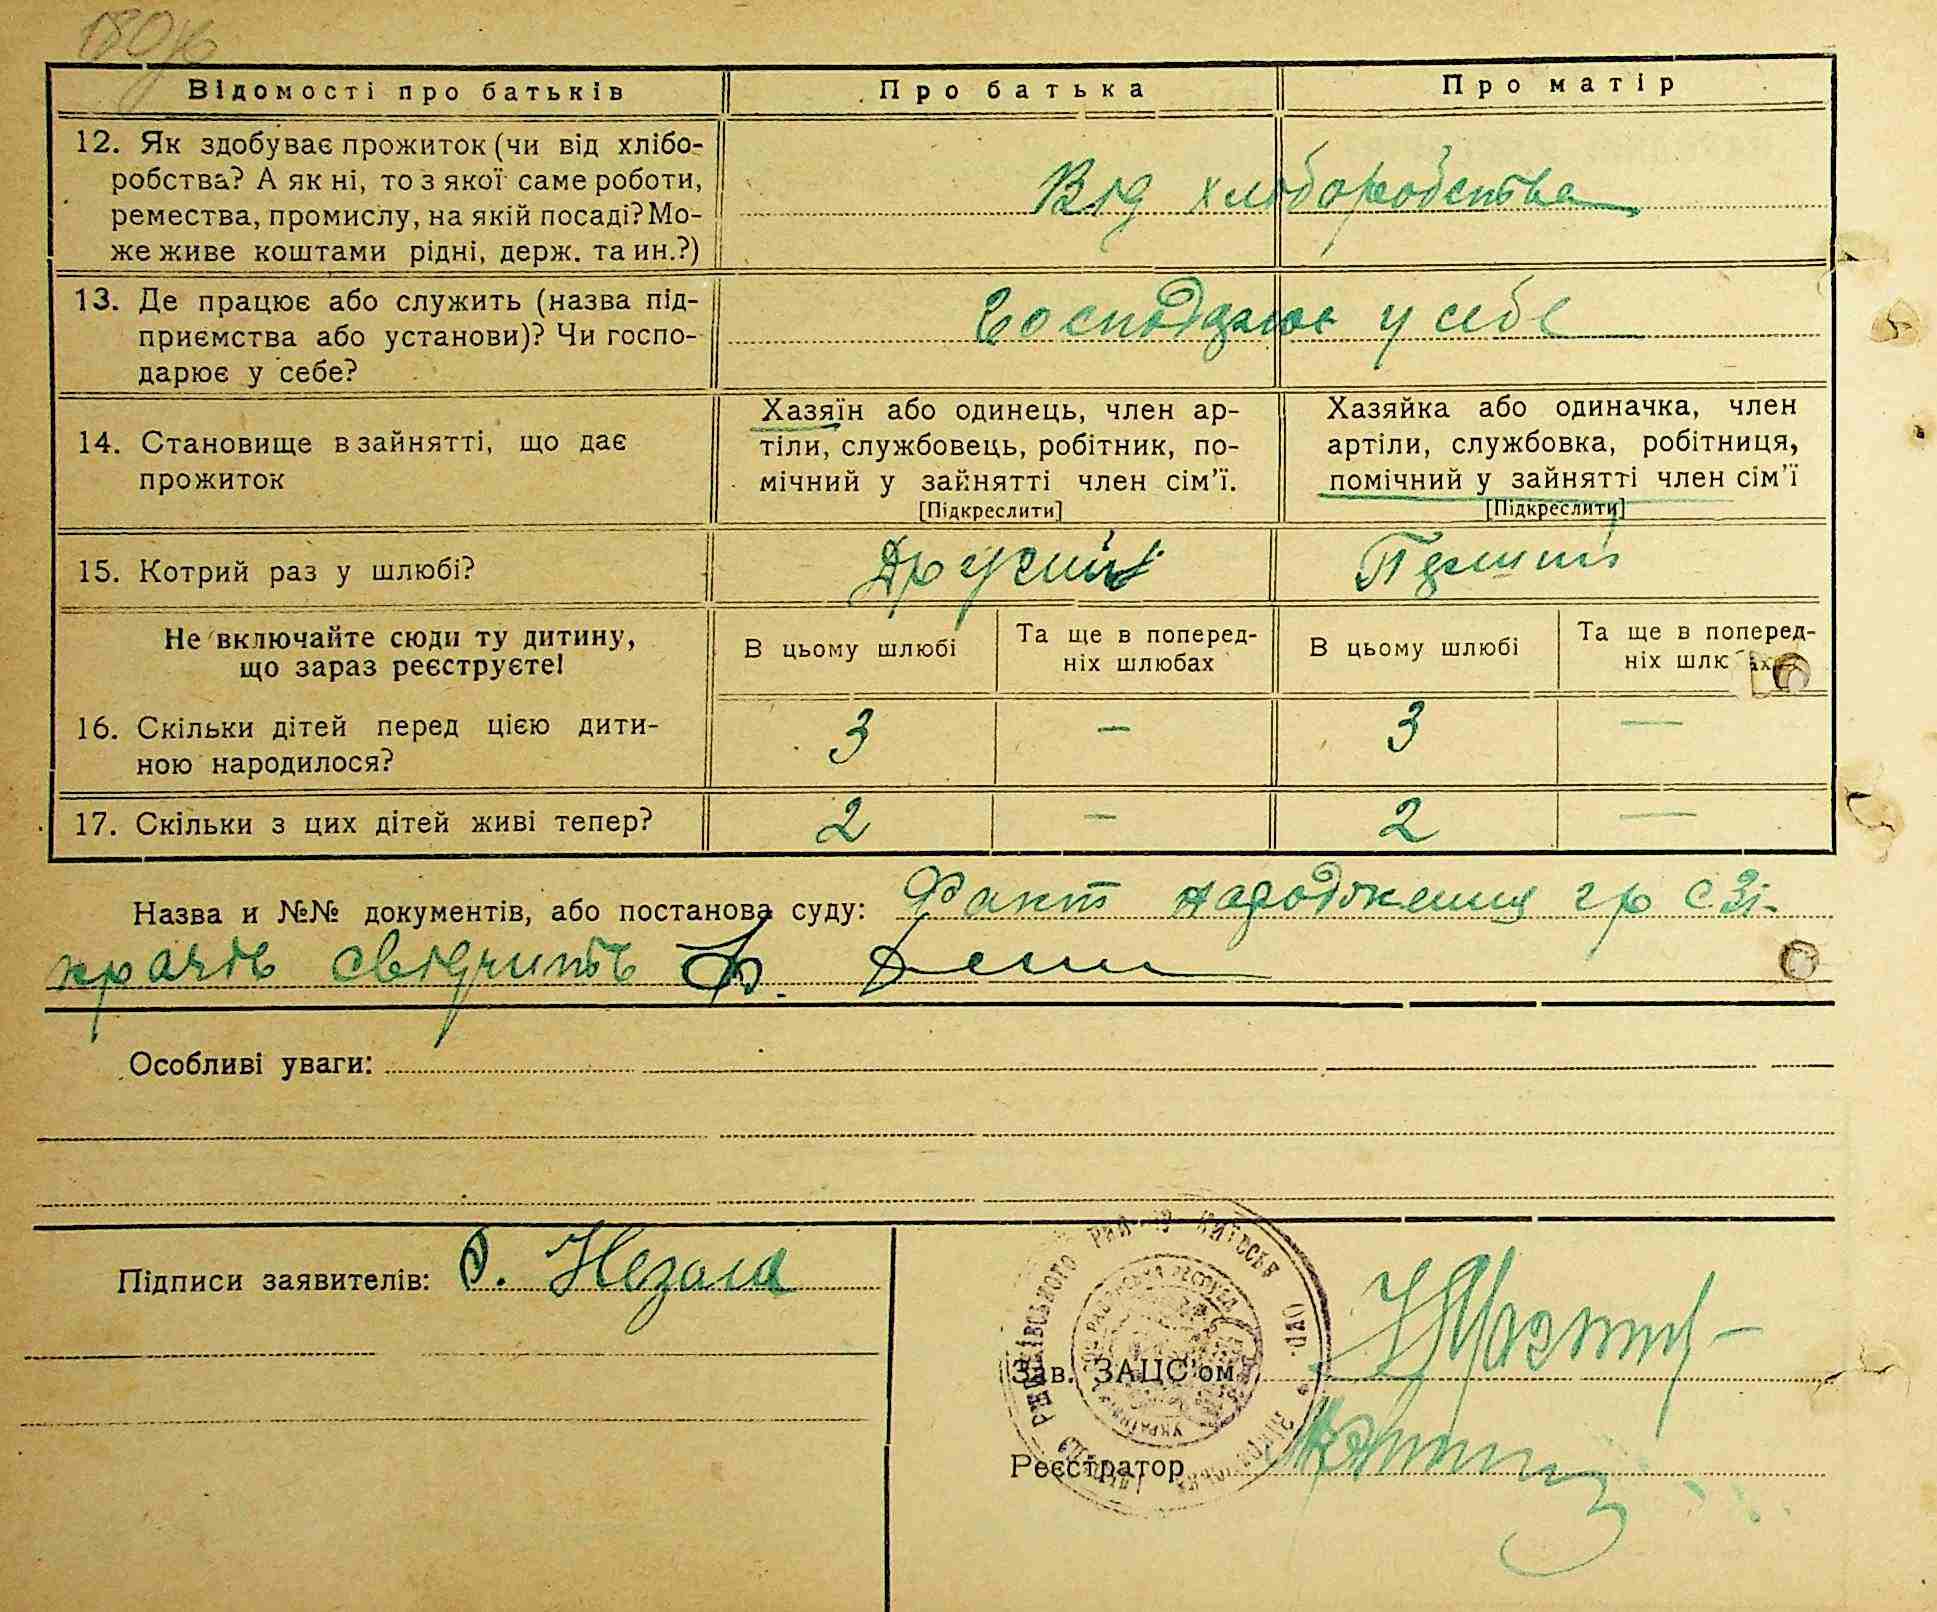 180
Відомості про батьків
Про батька
Про матір
12. Як здобуває прожиток (чи від хлібо-
робства? А як ні, то з якої саме роботи,
ремества, промислу, на якій посаді? Мо-
же живе коштами рідні, держ. та ин.?)
Від хліборобства
13. Де працює або служить (назва під-
приємства або установи)? Чи госпо-
дарює у себе?
Господарює у себе
14. Становище в зайнятті, що дає
прожиток
Хазяїн або одинець, член ар-
тіли, службовець, робітник, по-
мічний у зайнятті член сім'ї.
[Підкреслити]
Хазяйка або одиначка, член
артіли, службовка, робітниця,
помічний у зайнятті член сім'ї
[Підкреслити]
15. Котрий раз у шлюбі?
Другий
Перший
Не включайте сюди ту дитину,
що зараз реєструєте!
В цьому шлюбі
Та ще в поперед-
ніх шлюбах
В цьому шлюбі
Та ще в поперед-
ніх шлюбах
16. Скільки дітей перед цією дити-
ною народилося?
3 — 3 —
17. Скільки з цих дітей живі тепер?
2 — 2 —
Назва и №№ документів, або постанова суду: Факт народження гр с Зі-
крачів свідчить
Особливі уваги:
Підписи заявителів:
Зав. ЗАЦС'ом
Реєстратор